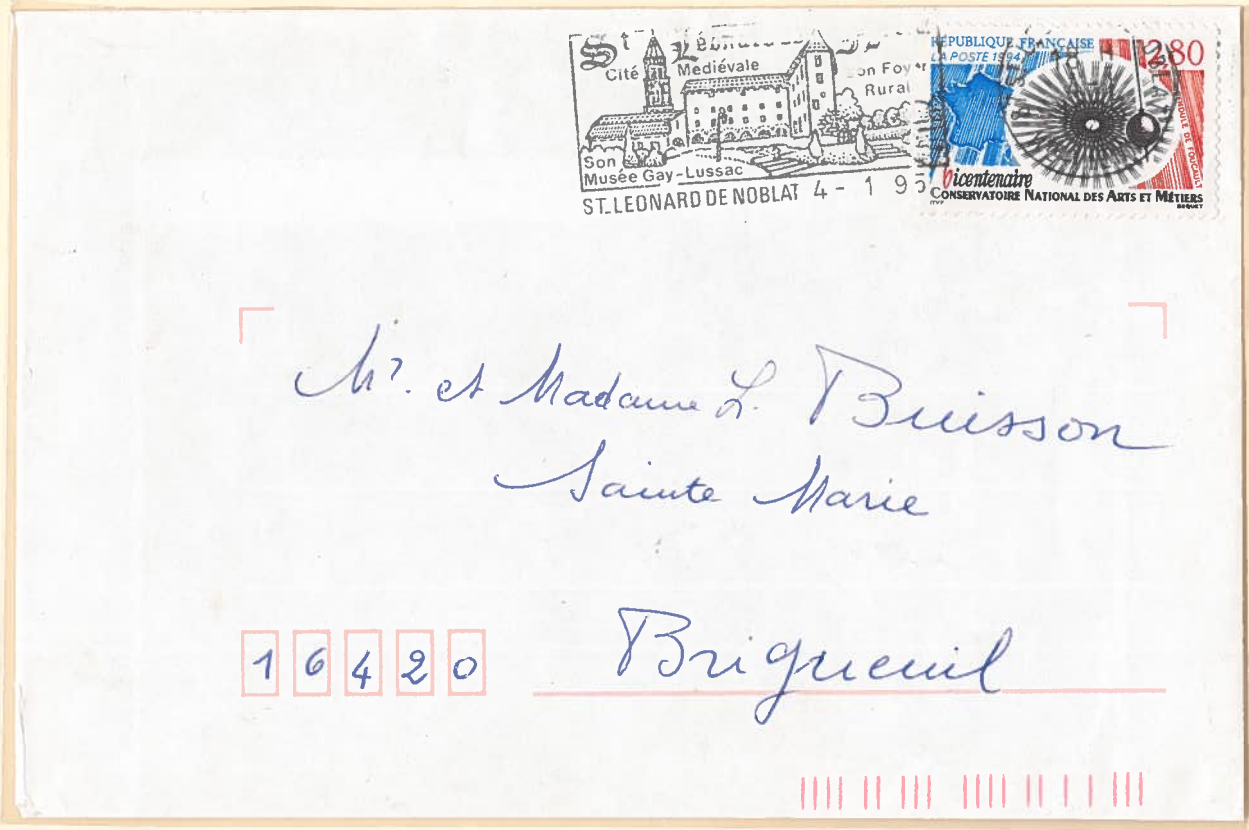 St Léonard de
Cité Mediévale
Son Foyer
Rural
Son
Musée Gay-Lussac
ST-LEONARD DE NOBLAT 4 - 1 95
RÉPUBLIQUE FRANÇAISE 2,80
LA POSTE 1994
PENDULE DE FOUCAULT
bicentenaire
CONSERVATOIRE NATIONAL DES ARTS ET MÉTIERS
ITVF
BEQUET
Mr. et Madame L. Buisson
Sainte Marie
16420 Brigueuil